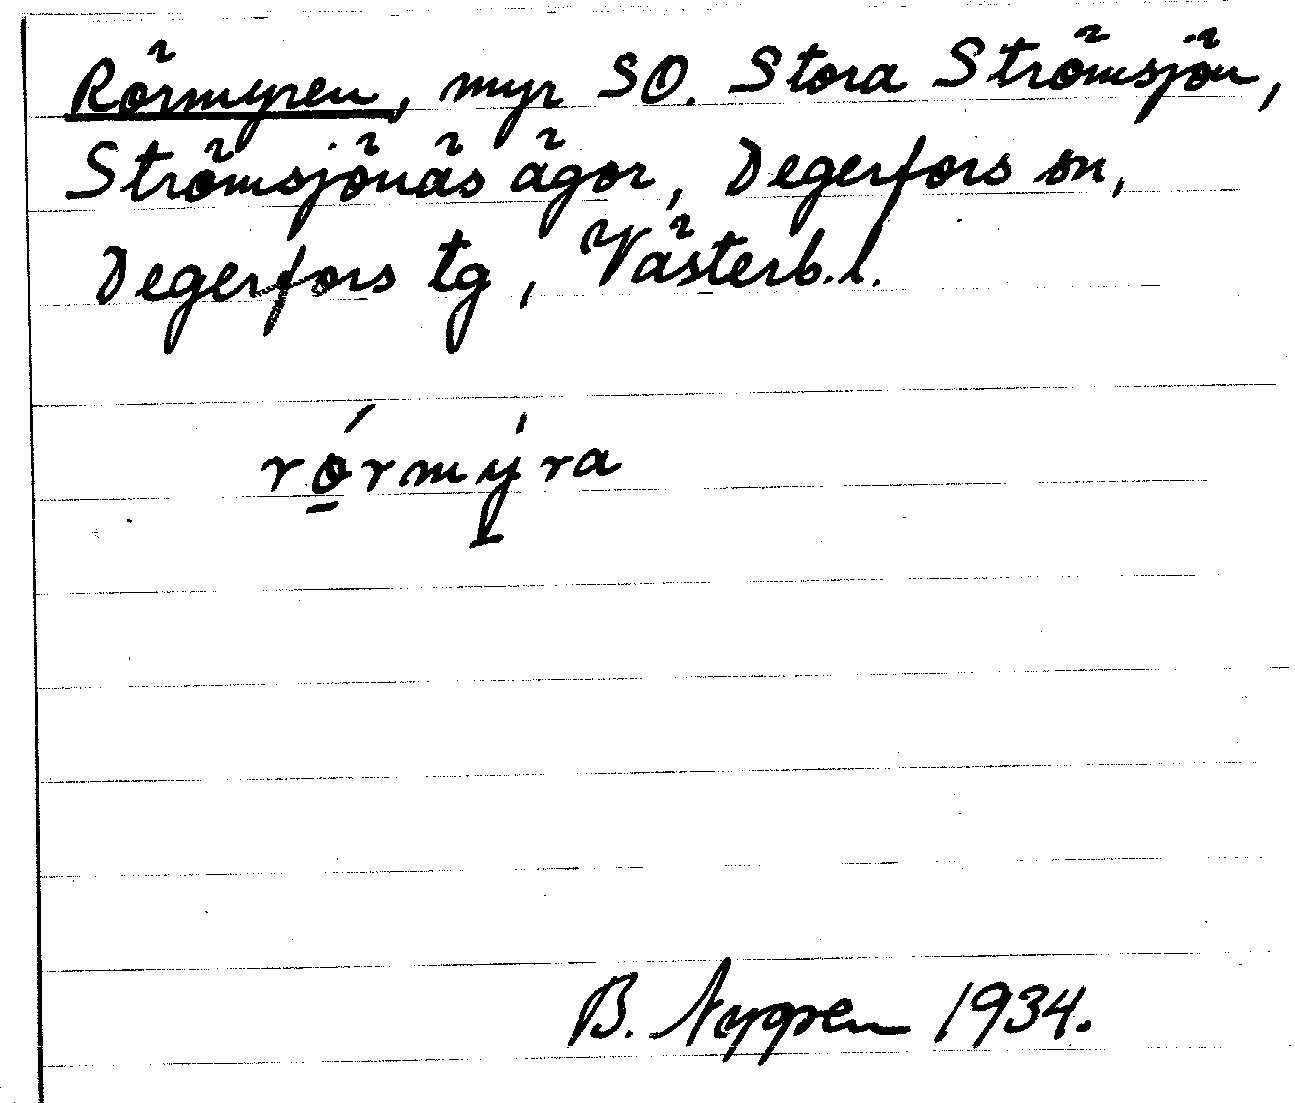 Rörmyren, myr SO. Stora Strömsjön,
Strömsjönäs ägor, Degerfors sn,
Degerfors tg, Västerb.l.
rǿ̱rmý̱ra
B. Nygren 1934.